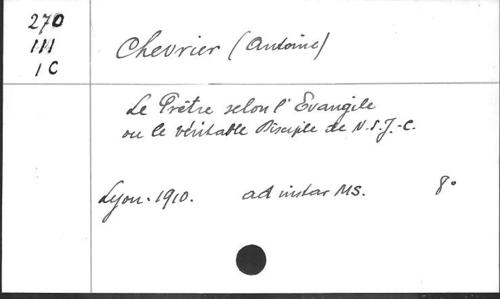 270
III
1 C
Chevrier (Antoine)
Le Prêtre selon l'Evangile
ou le véritable Disciple de N.S.J.-C.
Lyon. 1910. ad instar MS. 8°